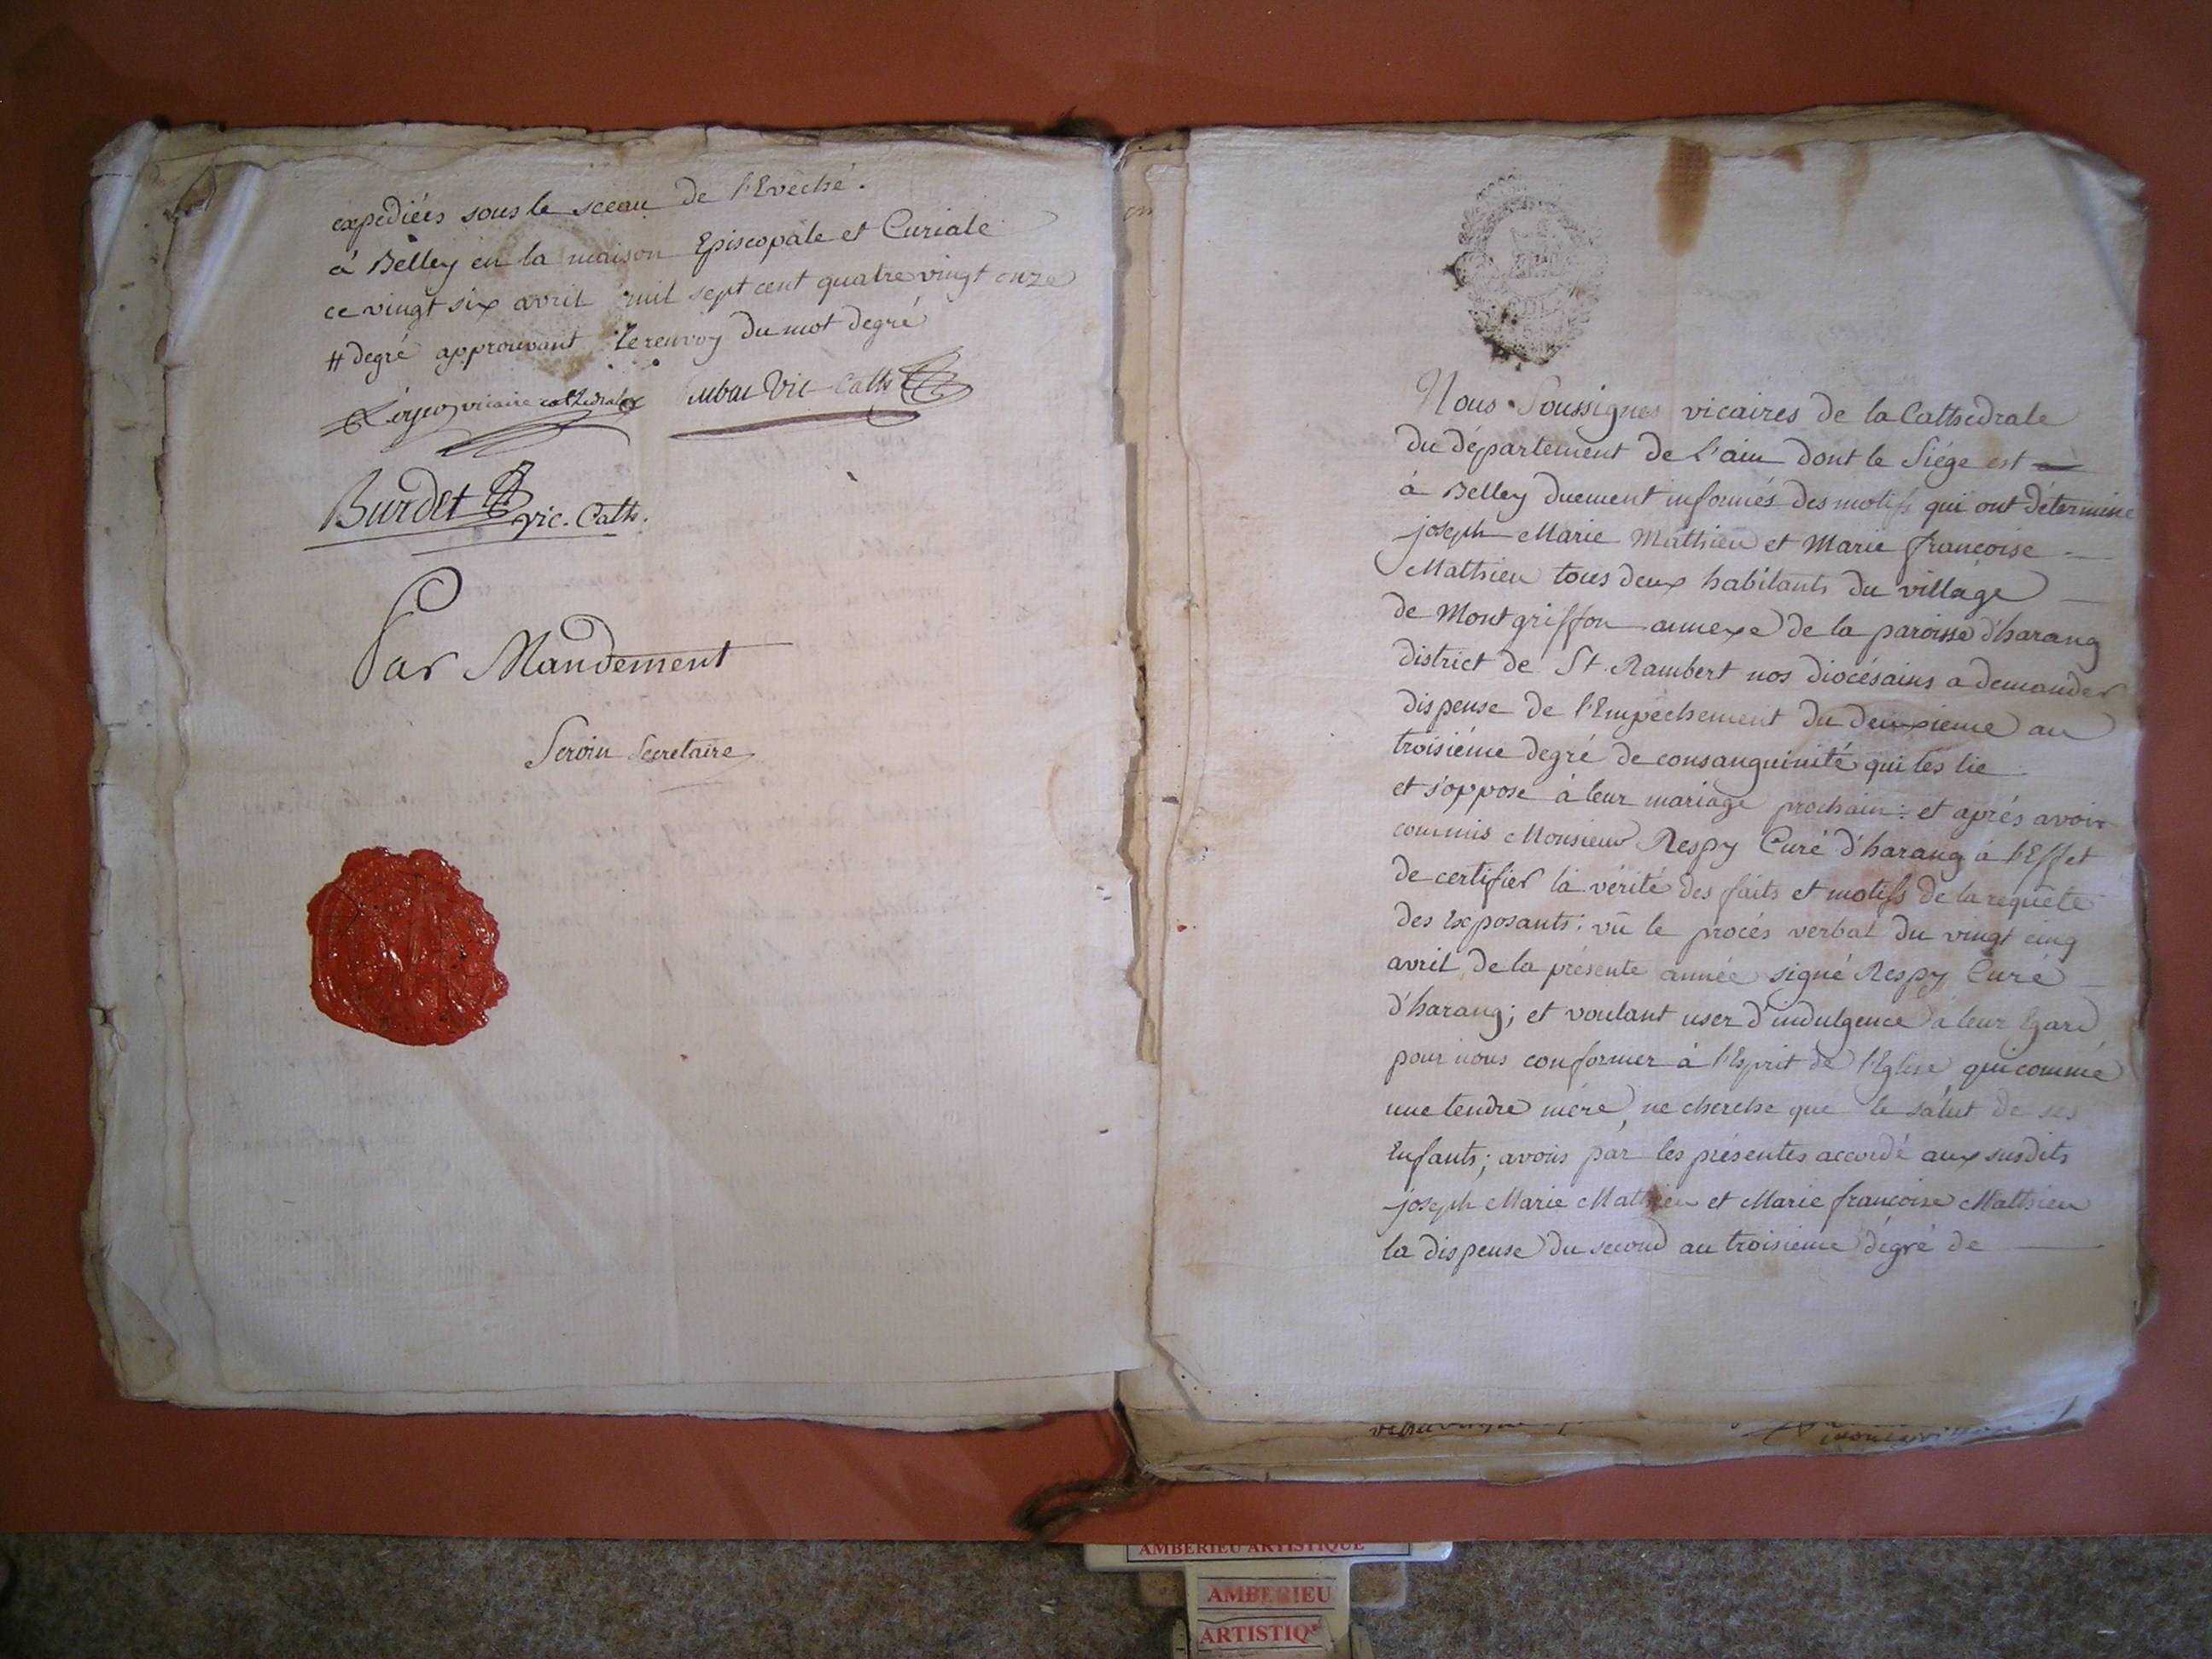 expediées sous le sceau de l'Evêché.
à Belley en la maison Episcopale et Curiale
ce vingt six avril mil sept cent quatre vingt onze
# degré approuvant le renvoy du mot degré
vicaire cathedrale Vic Cath
Burdet vic. Cath.
Par Mandement
Secretaire
Nous Soussignés vicaires de la Cathedrale
du département de L'ain dont le Siége est
à Belley duement informés des motifs qui ont déterminé
joseph Marie Mathieu et Marie françoise
Mathieu tous deux habitants du village
de Montgriffon annexe de la paroisse d'harang
district de St. Rambert nos diocésains a demander
dispense de l'Empechement du deuxieme au
troisiéme degré de consanguinité qui les lie
et s'oppose à leur mariage prochain: et aprés avoir
commis Monsieur Respy Curé d'harang à l'Effet
de certifier la vérité des faits et motifs de la requête
des Exposants: vû le procés verbal du vingt cinq
avril de la présente année signé Respy Curé
d'harang; et voulant user d'indulgence a leur Egard
pour nous conformer à l'Esprit de l'Eglise qui comme
une tendre mére, ne cherche que le salut de ses
Enfants; avons par les présentes accordé aux susdits
joseph Marie Mathieu et Marie francoise Mathieu
la dispense du second au troisieme dégré de
AMBERIEU ARTISTIQUE
AMBERIEU
ARTISTIQ